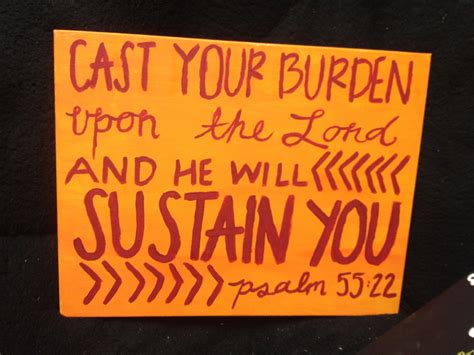 CAST YOUR BURDEN
upon the Lord
AND HE WILL <<<<<<
SUSTAIN YOU
>>>>>>> psalm 55:22